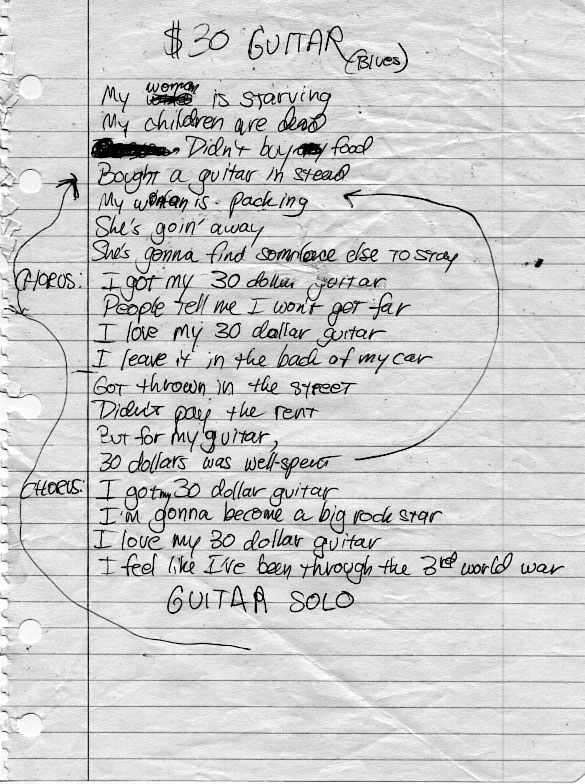 $30 GUITAR
(Blues)
My woman is starving
My children are dead
Didn't buy food
Bought a guitar in stead
My woman is packing
She's goin' away
She's gonna find someplace else to stay
CHORUS: I got my 30 dollar guitar
People tell me I won't get far
I love my 30 dollar guitar
I leave it in the back of my car
Got thrown in the street
Didn't pay the rent
But for my guitar,
30 dollars was well-spent
CHORUS: I got my 30 dollar guitar
I'm gonna become a big rock star
I love my 30 dollar guitar
I feel like I've been through the 3rd world war
GUITAR SOLO